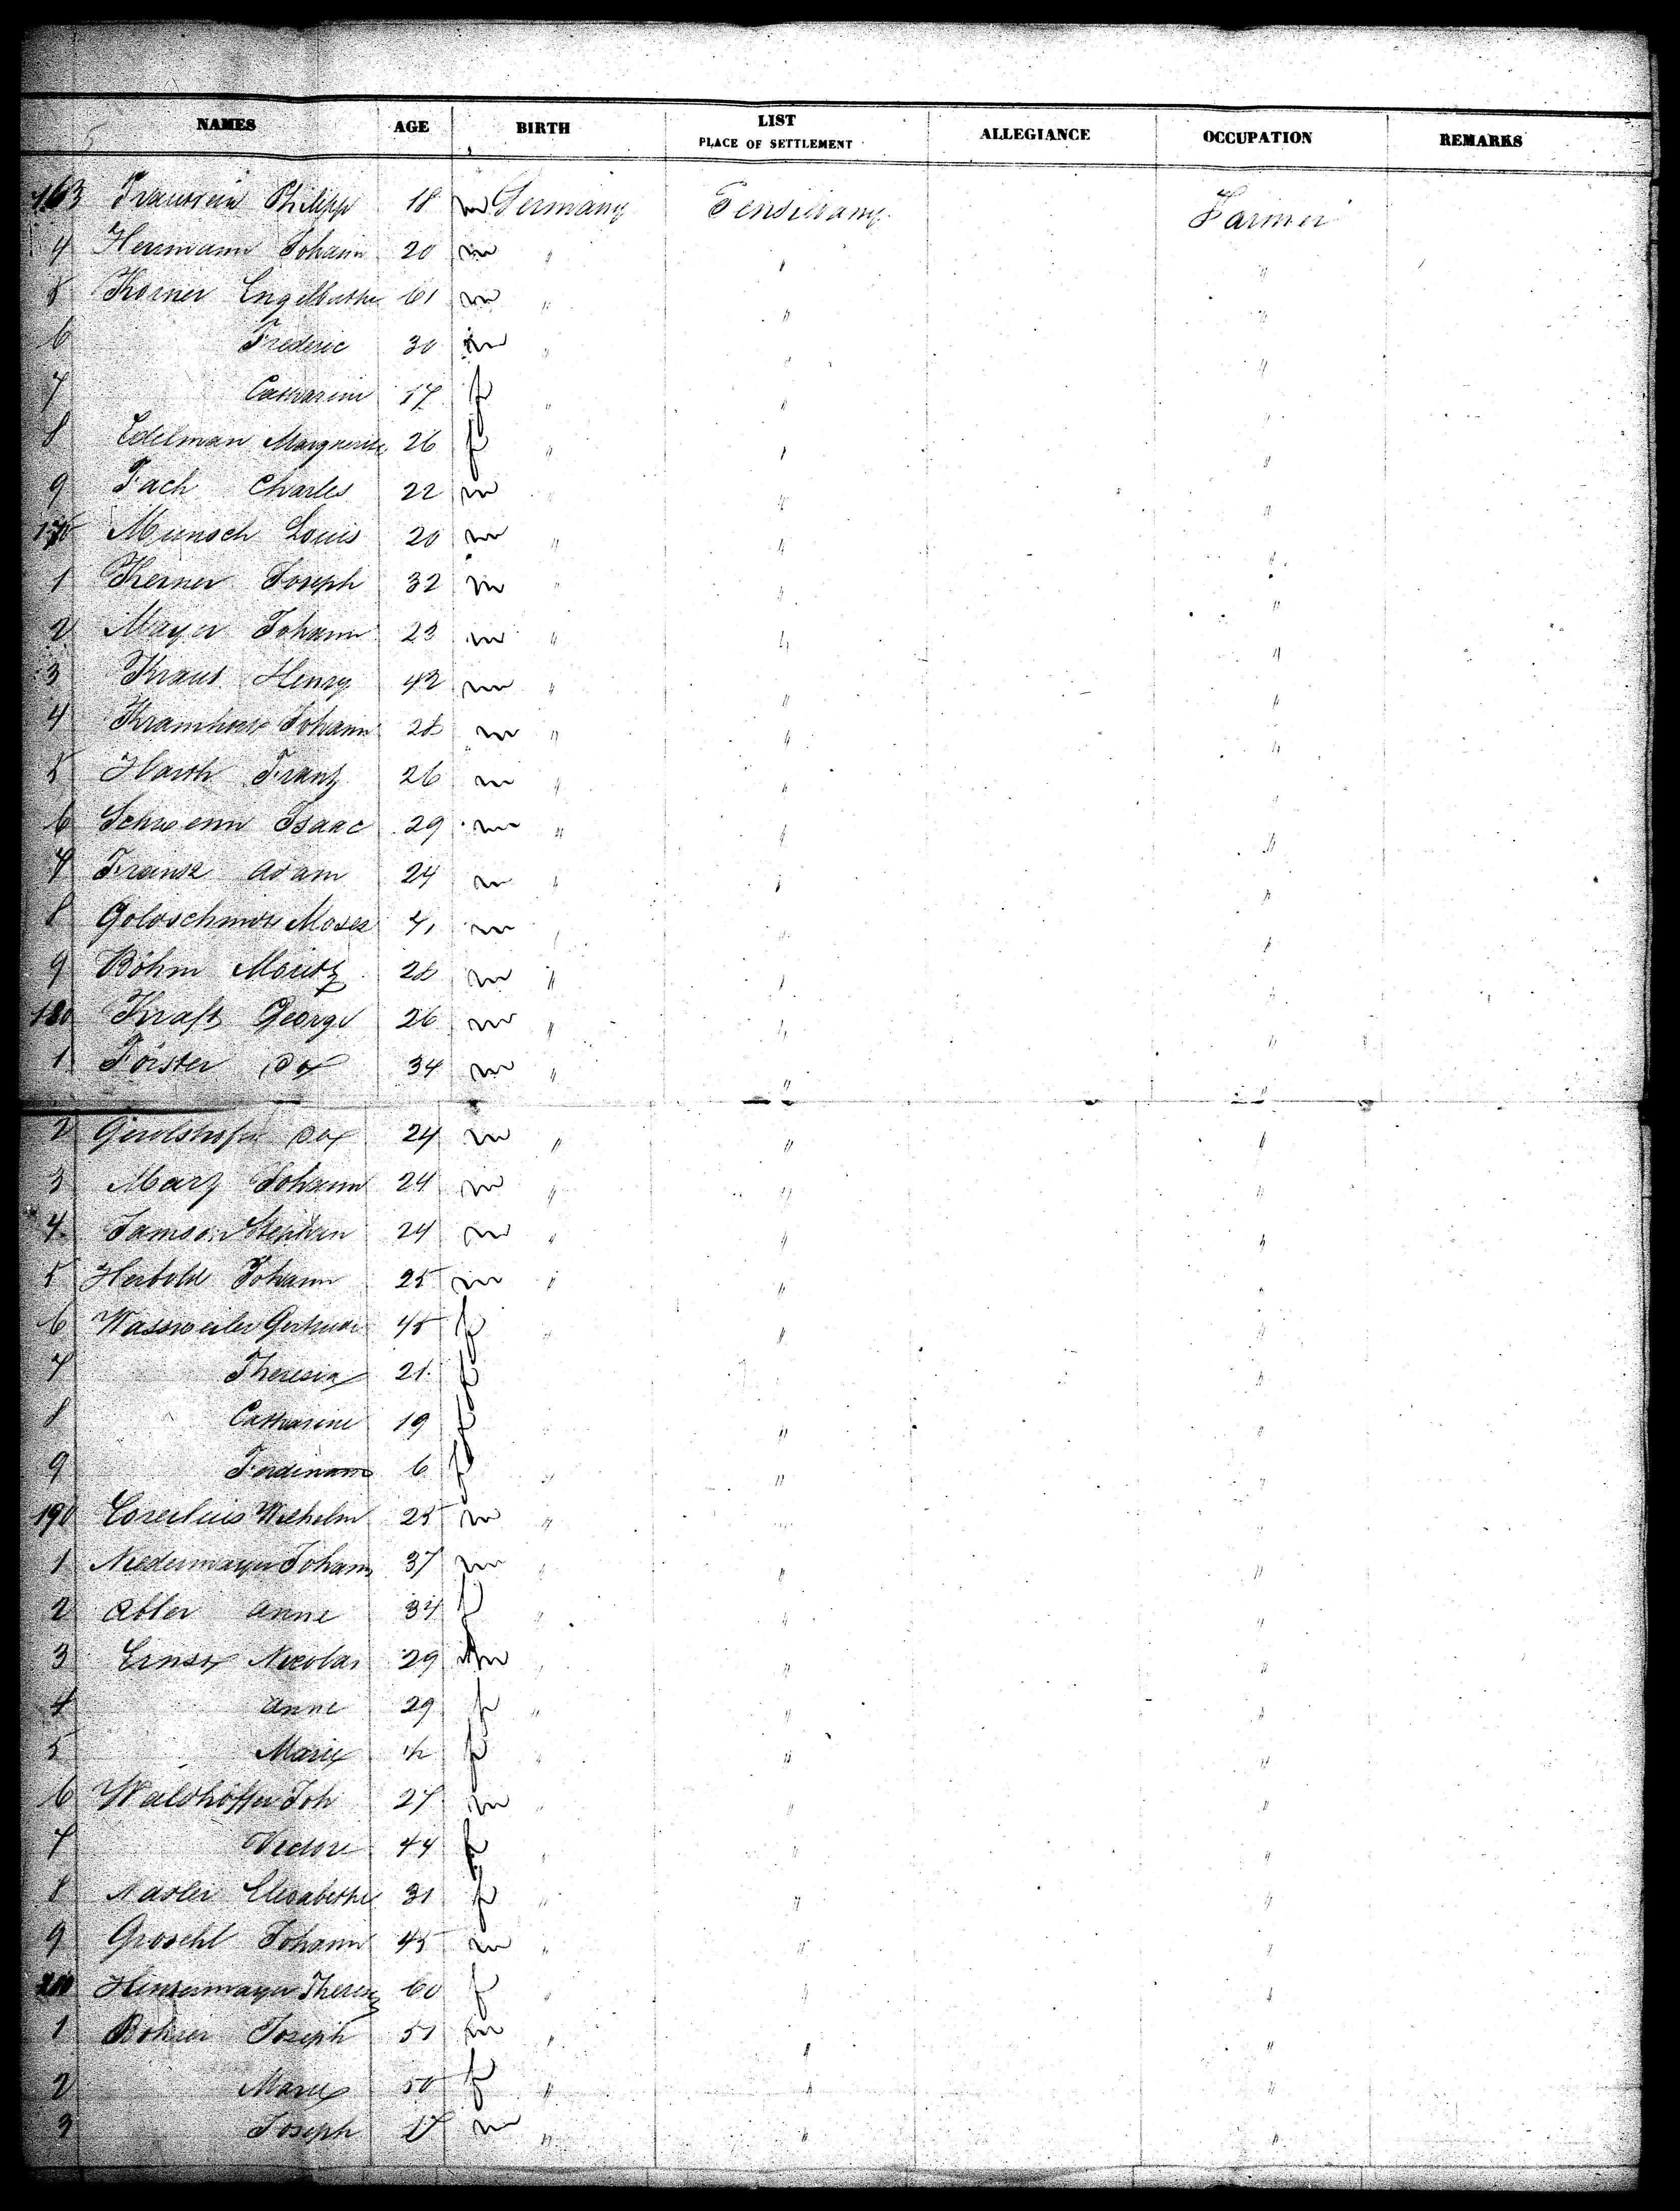 NAMES AGE BIRTH LIST PLACE OF SETTLEMENT ALLEGIANCE OCCUPATION REMARKS
163 Philipp 18 m Germany Pensilvany Farmer
4 Herrmann Johann 20 m " " "
5 Korner Engelberthe 61 m " " "
6 Frederic 30 m " " "
7 Catharine 17 f " " "
8 Edelman Marguerite 26 f " " "
9 Fach Charles 22 m " " "
170 Munsch Louis 20 m " " "
1 Kerner Joseph 32 m " " "
2 Mayer Johann 23 m " " "
3 Kraus Henry 42 m " " "
4 Johann 28 m " " "
5 Harth Frantz 26 m " " "
6 Schwenn Isaac 29 m " " "
7 Franz Adam 24 m " " "
8 Goldschmidt Moses 41 m " " "
9 Böhm Moritz 28 m " " "
180 Kraft George 26 m " " "
1 Förster do 34 m " " "
2 do 24 m " " "
3 Marz Johann 24 m " " "
4 Samson Stephen 24 m " " "
5 Herbold Johann 25 m " " "
6 Wassweiler Gertrude 45 f " " "
7 Theresia 21 f " "
8 Catharine 19 f " " "
9 Ferdinand 6 f " " "
190 Wilhelm 25 m " " "
1 Niedermayer Johann 37 m " " "
2 Adler Anne 34 f " " "
3 Ernst Nicolas 29 m " " "
4 Anne 29 f " " "
5 Marie f " " "
6 Waldhöffer Joh 27 m " " "
7 Victore 44 f " " "
8 Elisabethe 31 f " " "
9 Groschl Johann 45 m " " "
200 Hintermayer Theres 60 f " " "
1 Joseph 51 m " " "
2 Marie 50 f " " "
3 Joseph 17 m " " "